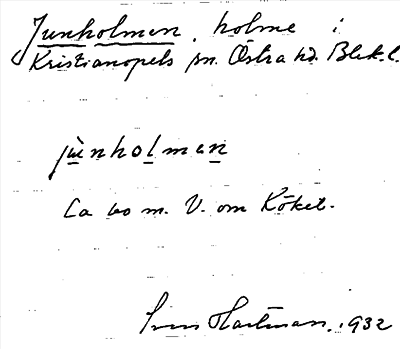 Junholmen, holme i
Kristianopels sn. Östra hd. Blek. l.
jùnholmen
Ca 60 m. V. om Köket.
Sven Hartman. 1932